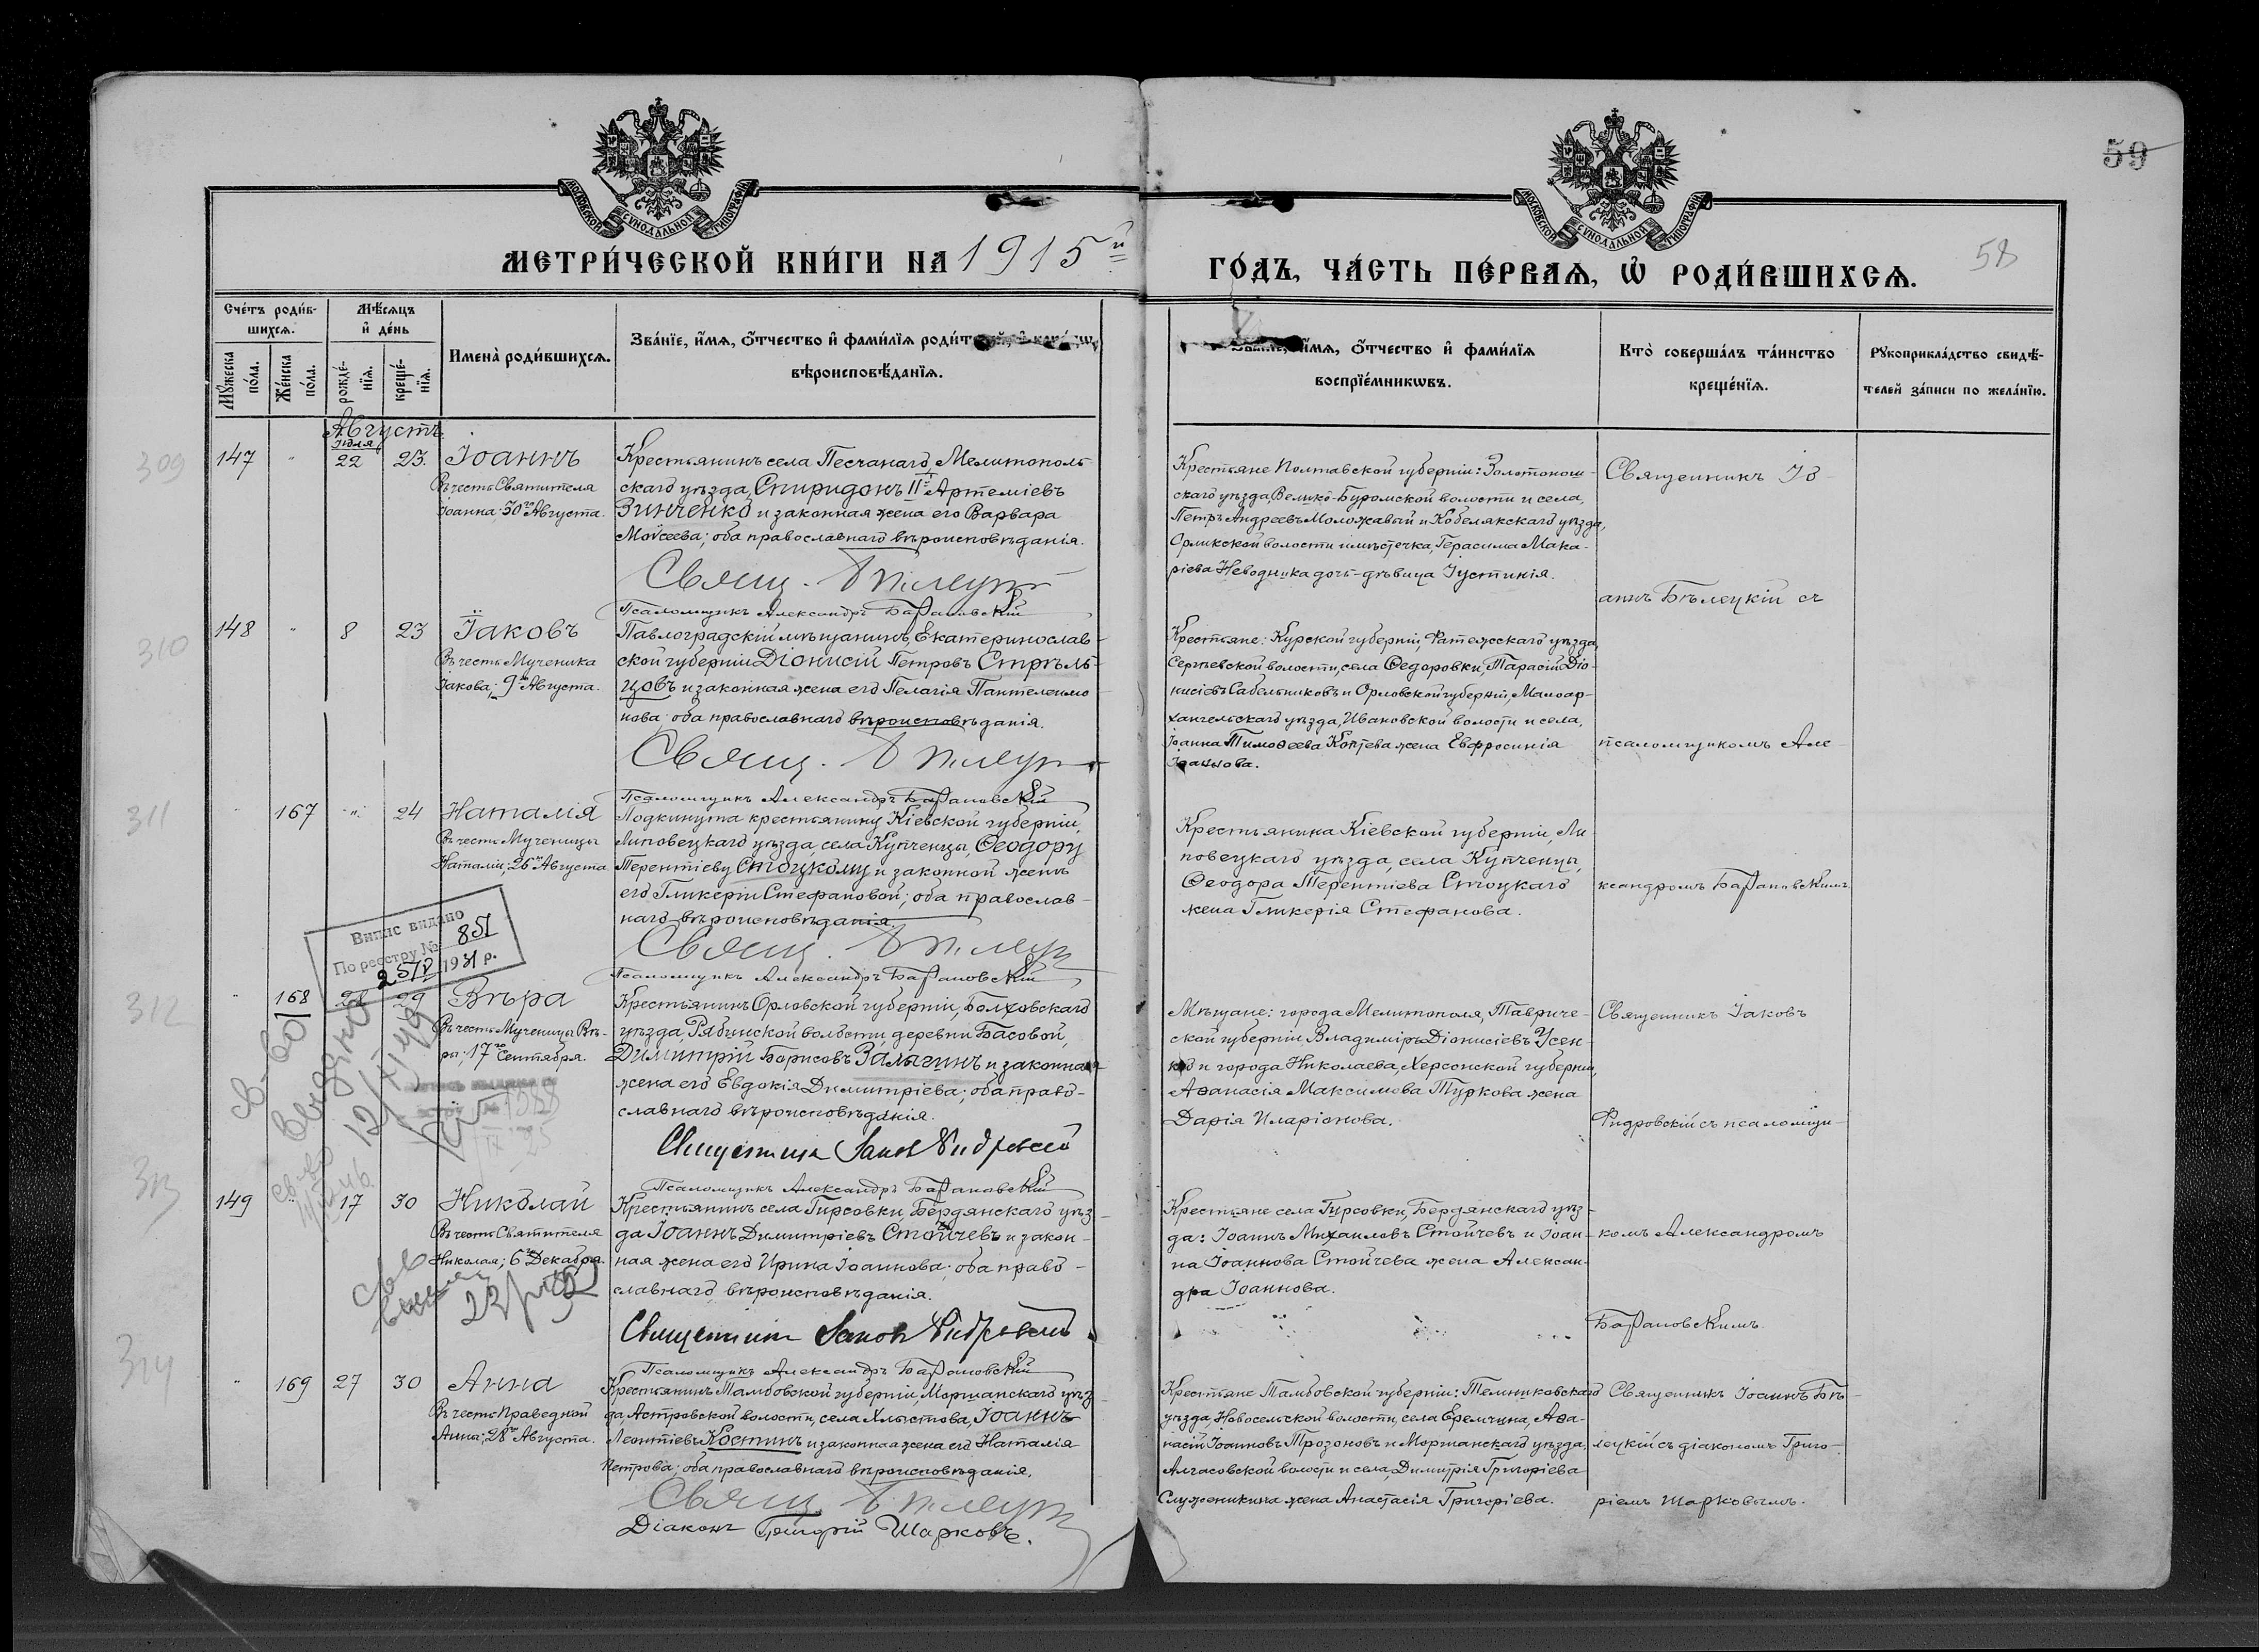 59
58
МОСКОВСКОЙ СѴНОДАЛЬНОЙ ТИПОГРАФІИ
МОСКОВСКОЙ СѴНОДАЛЬНОЙ ТИПОГРАФІИ
МЕТРИ́ЧЕСКОЙ КНИ́ГИ НА 1915й
ГО́ДЪ, ЧА́СТЬ ПЕ́РВАѦ, Ѽ РОДИ́ВШИХСѦ.
Сче́тъ роди́в-
шихсѧ.
Мѣ́сѧцъ
и҆ де́нь
Мꙋ́жеска по́ла.
Же́нска по́ла.
рожде́-нїѧ.
креще́-нїѧ.
Имена̀ роди́вшихсѧ.
Зва́нїе, и҆́мѧ, ѻ҆́тчество и҆ фами́лїѧ
вѣроисповѣ́данїѧ.
и҆́мѧ, ѻ҆́тчество и҆ фами́лїѧ
воспрїе́мникѡвъ.
Кто̀ соверша́лъ та́инство
креще́нїѧ.
Рꙋкоприкла́дство свидѣ́-
телей за́писи по жела́нїю.
Августъ.
Іюля
309
147 " 22 23. Іоаннъ
Въ честь Святителя
Іоанна; 30го Августа.
Крестьянинъ села Песчанаго, Мелитополь-
скаго уѣзда, Спиридонъ IIй Артеміевъ
Зинченко и законная жена его Варвара
Моѵсеева; оба православнаго вѣроисповѣданія.
Свящ.
Псаломщикъ Александръ Барановскій
Крестьяне Полтавской губерніи: Золотонош-
скаго уѣзда, Велико-Буромской волости и села,
Петръ Андреевъ Моложавый и Кобелякскаго уѣзда,
Орликской волости и мѣстечка, Герасима Мака-
ріева Неводника дочь-дѣвица Іустинія.
Священникъ Іо-
аннъ Бѣлецкій съ
310
148 " 8 23 Іаковъ
Въ честь Мученика
Іакова; 9го Августа.
Павлоградскій мѣщанинъ, Екатеринослав-
ской губерніи Діонисій Петровъ Стрѣль-
цовъ и законная жена его Пелагія Пантелеимо-
нова; оба православнаго вѣроисповѣданія.
Свящ.
Псаломщикъ Александръ Барановскій
Крестьяне: Курской губерніи, Фатежскаго уѣзда,
Сергѣевской волости, села Ѳедоровки, Тарасій Діо-
нисіевъ Сабельниковъ и Орловской губерніи, Малоар-
хангельскаго уѣзда, Ивановской волости и села,
Іоанна Тимоѳеева Коптева жена Евфросинія
Іоаннова.
псаломщикомъ Але-
311
" 167 " 24 Наталія
Въ честь Мученицы
Наталіи; 26го Августа
Подкинута крестьянину Кіевской губерніи,
Липовецкаго уѣзда, села Купченцы, Ѳеодору
Терентіеву Стоцкому и законной женѣ
его Гликеріи Стефановой; оба православ-
наго вѣроисповѣданія.
Свящ.
Псаломщикъ Александръ Барановскій
Крестьянина Кіевской губерніи, Ли-
повецкаго уѣзда, села Купченцы,
Ѳеодора Терентіева Стоцкаго
жена Гликерія Стефанова.
ксандромъ Барановскимъ.
Випис видано
По реєстру № 851
1931 р.
312
" 168 28 29 Вѣра
Въ честь Мученицы Вѣ-
ры; 17го Сентября.
Крестьянинъ Орловской губерніи, Болховскаго
уѣзда, Рябинской волости, деревни Басовой,
Димитрій Борисовъ Залыгинъ и законная
жена его Евдокія Димитріева; оба право-
славнаго вѣроисповѣданія.
Священникъ Іаковъ Фидровскій
Псаломщикъ Александръ Барановскій
Мѣщане: города Мелитополя, Тавриче-
ской губерніи, Владиміръ Діонисіевъ Усен-
ко и города Николаева, Херсонской губерніи,
Аѳанасія Максимова Туркова жена
Дарія Иларіонова.
Священникъ Іаковъ
Фидровскій съ псаломщи-
313
149 " 17 30 Николай
Въ честь Святителя
Николая; 6го Декабря.
Крестьянинъ села Гирсовки, Бердянскаго уѣз-
да Іоаннъ Димитріевъ Стойчевъ и закон-
ная жена его Ирина Іоаннова; оба право-
славнаго вѣроисповѣданія.
Священникъ Іаковъ Фидровскій
Псаломщикъ Александръ Барановскій
Крестьяне села Гирсовки, Бердянскаго уѣз-
да: Іоаннъ Михаиловъ Стойчевъ и Іоан-
на Іоаннова Стойчева жена Алексан-
дра Іоаннова.
комъ Александромъ
Барановскимъ.
314
" 169 27 30 Анна
Въ честь Праведной
Анны; 28го Августа.
Крестьянинъ Тамбовской губерніи, Моршанскаго уѣз-
да, Астровской волости, села Хлыстова, Іоаннъ
Леонтіевъ Костинъ и законная жена его Наталія
Петрова; оба православнаго вѣроисповѣданія.
Свящ.
Діаконъ Григорій Шарковъ.
Крестьяне Тамбовской губерніи: Темниковскаго
уѣзда, Новосельской волости, села Еремчина, Аѳа-
насій Іоанновъ Трозоновъ и Моршанскаго уѣзда,
Алгасовской волости и села, Димитрія Григоріева
Служеникина жена Анастасія Григоріева.
Священникъ Іоаннъ Бѣ-
лецкій съ діакономъ Григо-
ріемъ Шарковымъ.